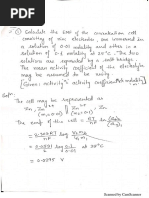 ① Calculate the EMF of the concentration cell
consisting of zinc electrodes, one immersed
in a solution of 0.01 molality and other in a
solution of 0.1 molality at 25°C. The two
solutions are separated by a salt bridge.
The mean activity coefficient of the electrolyte
may be assumed to be unity.
[Given: activity = activity coefficient × molality]
Soln:
The cell may be represented as
Zn | Zn²⁺ || Zn²⁺ | Zn
(m₁=0.01) (m₂=0.1)
The emf of the cell =
at 25°C
= 0.0295 V